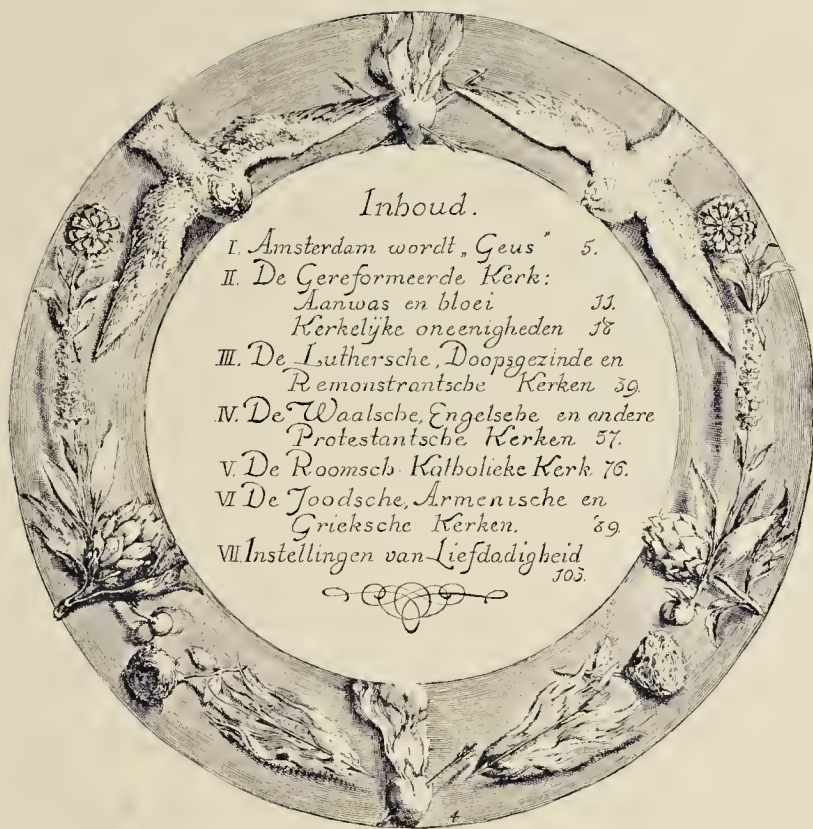 Inhoud.
I. Amsterdam wordt „Geus" 5.
II. De Gereformeerde Kerk:
Aanwas en bloei 11.
Kerkelijke oneenigheden 18
III. De Luthersche, Doopsgezinde en
Remonstrantsche Kerken 39.
IV. De Waalsche, Engelsche en andere
Protestantsche Kerken 57.
V. De Roomsch-Katholieke Kerk 76.
VI De Joodsche, Armenische en
Grieksche Kerken. 89.
VII. Instellingen van Liefdadigheid
103.
4